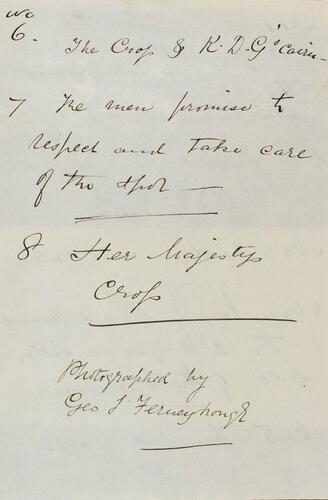 No
6. The Crofs & K. D. G.s cairn_
7 The men promise to
respect and take care
of the spot —
8 Her Majestys
Crofs
Photographed by
Geo S Ferneyhough